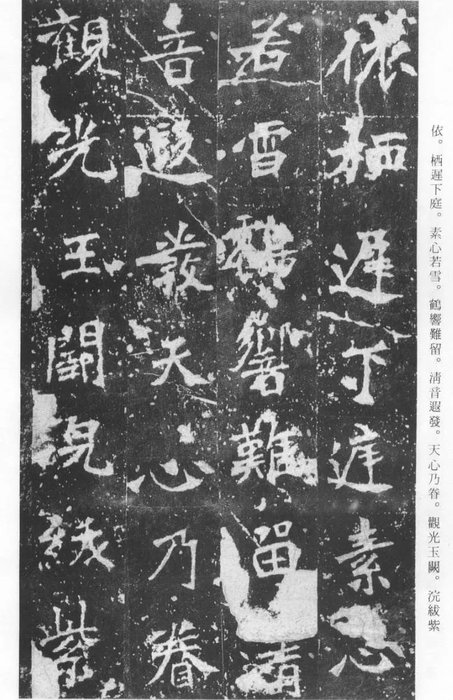 依。栖遲下庭。素心若雪。鶴響難留。清音遐發。天心乃眷。觀光玉闕。浣紱紫
依栖遲下庭素心
若雪鶴響難留清
音遐發天心乃眷
觀光玉闕浣紱紫